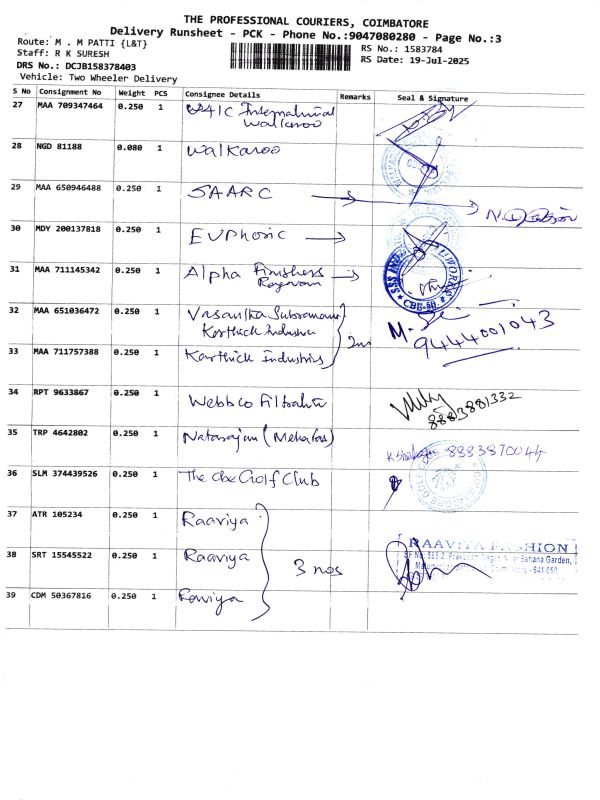 THE PROFESSIONAL COURIERS, COIMBATORE
Delivery Runsheet - PCK - Phone No.:9047080280 - Page No.:3
Route: M . M PATTI {L&T}
RS No.: 1583784
Staff: R K SURESH
RS Date: 19-Jul-2025
DRS No.: DCJB158378403
Vehicle: Two Wheeler Delivery
S No Consignment No Weight PCS Consignee Details Remarks Seal & Signature
27 MAA 709347464 0.250 1 International
Walkaroo
28 NGD 81188 0.080 1 Walkaroo
29 MAA 650946488 0.250 1 SAARC
30 MDY 200137818 0.250 1 EUPhoric
31 MAA 711145342 0.250 1 Alpha Finishers
32 MAA 651036472 0.250 1 Vasantha Subramani
Karthick Industries
9444001043
33 MAA 711757388 0.250 1 Karthick Industries
34 RPT 9633867 0.250 1 Webbco Filtration
8883881332
35 TRP 4642802 0.250 1 Natarajan
8883870044
36 SLM 374439526 0.250 1 The Cbe Golf Club
37 ATR 105234 0.250 1 Raaviya
RAAVIYA FASHION
38 SRT 15545522 0.250 1 Raaviya 3 nos
39 CDM 50367816 0.250 1 Raviya